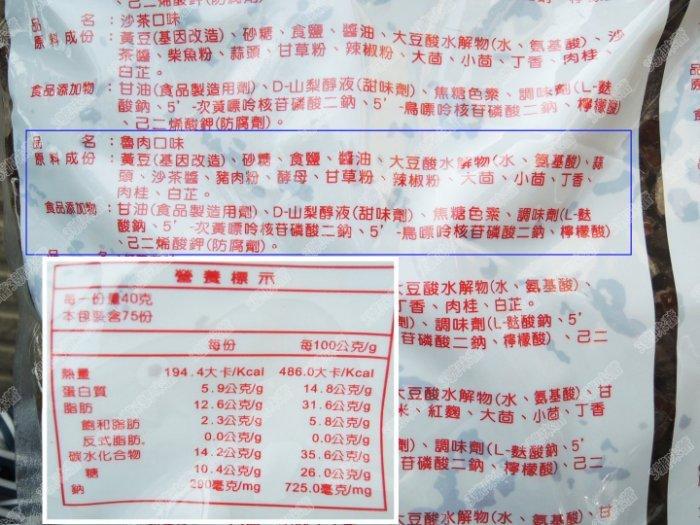 、己二烯酸鉀(防腐劑)。
品　　名：沙茶口味
原料成份：黃豆(基因改造)、砂糖、食鹽、醬油、大豆酸水解物(水、氨基酸)、沙
茶醬、柴魚粉、蒜頭、甘草粉、辣椒粉、大茴、小茴、丁香、肉桂、
白芷。
食品添加物：甘油(食品製造用劑)、D-山梨醇液(甜味劑)、焦糖色素、調味劑(L-麩
酸鈉、5’-次黃嘌呤核苷磷酸二鈉、5’-鳥嘌呤核苷磷酸二鈉、檸檬酸)
、己二烯酸鉀(防腐劑)。
品　　名：魯肉口味
原料成份：黃豆(基因改造)、砂糖、食鹽、醬油、大豆酸水解物(水、氨基酸)、蒜
頭、沙茶醬、豬肉粉、酵母、甘草粉、辣椒粉、大茴、小茴、丁香、
肉桂、白芷。
食品添加物：甘油(食品製造用劑)、D-山梨醇液(甜味劑)、焦糖色素、調味劑(L-麩
酸鈉、5’-次黃嘌呤核苷磷酸二鈉、5’-鳥嘌呤核苷磷酸二鈉、檸檬酸)
、己二烯酸鉀(防腐劑)。
大豆酸水解物(水、氨基酸)、
丁香、肉桂、白芷。
、調味劑(L-麩酸鈉、5’
苷磷酸二鈉、檸檬酸)、己二
大豆酸水解物(水、氨基酸)、甘
米、紅麴、大茴、小茴、丁香
、調味劑(L-麩酸鈉、5’
苷磷酸二鈉、檸檬酸)、己二
大豆酸水解物(水、氨基酸)、
營養標示
每一份量40克
本包裝含75份
每份　每100公克/g
熱量　194.4大卡/Kcal　486.0大卡/Kcal
蛋白質　5.9公克/g　14.8公克/g
脂肪　12.6公克/g　31.6公克/g
飽和脂肪　2.3公克/g　5.8公克/g
反式脂肪　0.0公克/g　0.0公克/g
碳水化合物　14.2公克/g　35.6公克/g
糖　10.4公克/g　26.0公克/g
鈉　290毫克/mg　725.0毫克/mg